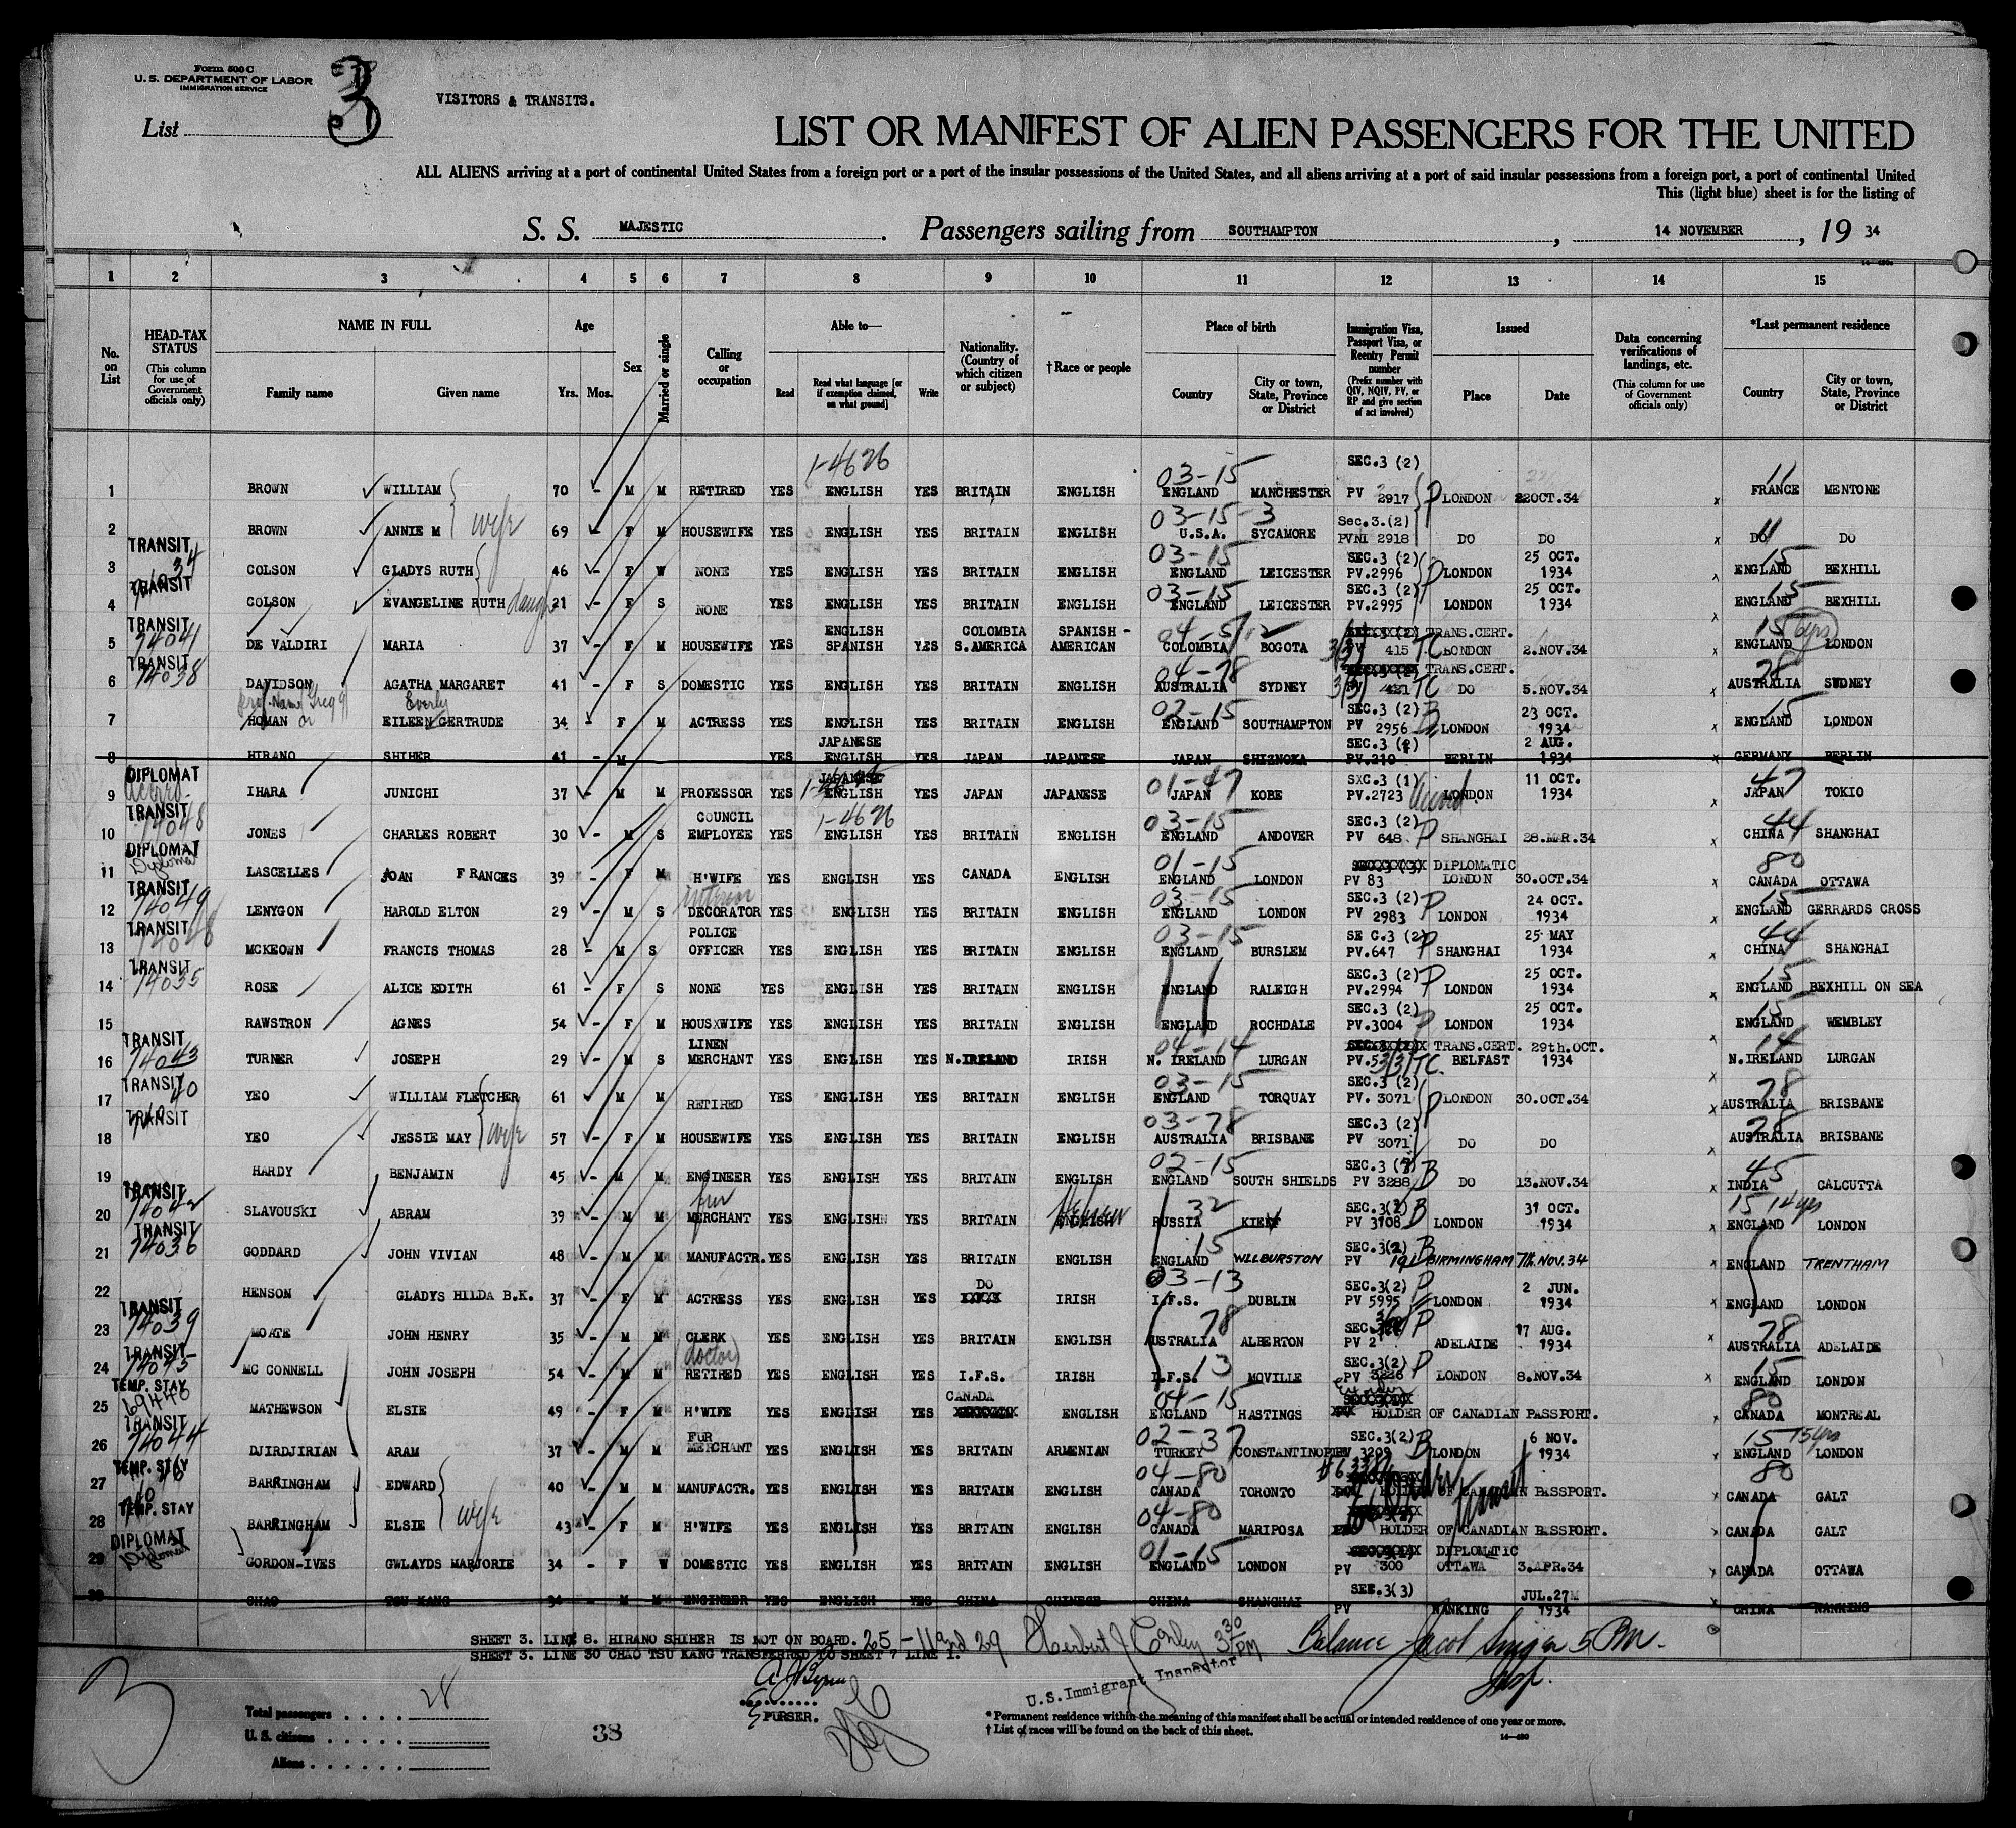 Form 500 C
U. S. DEPARTMENT OF LABOR
IMMIGRATION SERVICE
List 3
VISITORS & TRANSITS.
LIST OR MANIFEST OF ALIEN PASSENGERS FOR THE UNITED
ALL ALIENS arriving at a port of continental United States from a foreign port or a port of the insular possessions of the United States, and all aliens arriving at a port of said insular possessions from a foreign port, a port of continental United
This (light blue) sheet is for the listing of
S. S. MAJESTIC. Passengers sailing from SOUTHAMPTON, 14 NOVEMBER, 19 34
1 2 3 4 5 6 7 8 9 10 11 12 13 14 15
No. on List
HEAD-TAX STATUS (This column for use of Government officials only)
NAME IN FULL Family name Given name
Age Yrs. Mos.
Sex
Married or single
Calling or occupation
Able to— Read Read what language [or if exemption claimed, on what ground] Write
Nationality. (Country of which citizen or subject)
†Race or people
Place of birth Country City or town, State, Province or District
Immigration Visa, Passport Visa, or Reentry Permit number (Prefix number with QIV, NQIV, PV, or RP and give section of act involved)
Issued Place Date
Data concerning verifications of landings, etc. (This column for use of Government officials only)
*Last permanent residence Country City or town, State, Province or District
1-4626 03-15 SEC.3 (2) 11
1 BROWN WILLIAM 70 - M M RETIRED YES ENGLISH YES BRITAIN ENGLISH ENGLAND MANCHESTER PV 2917 P LONDON 22OCT.34 x FRANCE MENTONE
03-15-3 Sec.3.(2) 11
2 BROWN ANNIE M wife 69 - F M HOUSEWIFE YES ENGLISH YES BRITAIN ENGLISH U.S.A. SYCAMORE PVNI 2918 DO DO x DO DO
TRANSIT 03-15 SEC.3 (2) 25 OCT. 15
3 COLSON GLADYS RUTH 46 - F W NONE YES ENGLISH YES BRITAIN ENGLISH ENGLAND LEICESTER PV.2996 P LONDON 1934 x ENGLAND BEXHILL
TRANSIT 03-15 SEC.3 (2) 25 OCT. 15
4 COLSON EVANGELINE RUTH daugh 21 - F S NONE YES ENGLISH YES BRITAIN ENGLISH ENGLAND LEICESTER PV.2995 LONDON 1934 x ENGLAND BEXHILL
TRANSIT 74041 ENGLISH COLOMBIA SPANISH - TRANS.CERT. 15
5 DE VALDIRI MARIA 37 - F M HOUSEWIFE YES SPANISH YES S.AMERICA AMERICAN COLOMBIA BOGOTA 3(3) PV 415 TC LONDON 2.NOV.34 x ENGLAND LONDON
TRANSIT 74038 04-78 TRANS.CERT. 78
6 DAVIDSON AGATHA MARGARET 41 - F S DOMESTIC YES ENGLISH YES BRITAIN ENGLISH AUSTRALIA SYDNEY 3(3) PV 421 TC DO 5.NOV.34 x AUSTRALIA SYDNEY
Name Gregg Everly 02-15 SEC.3 (2) B 23 OCT. 15
7 HOMAN or EILEEN GERTRUDE 34 - F M ACTRESS YES ENGLISH YES BRITAIN ENGLISH ENGLAND SOUTHAMPTON PV 2956 LONDON 1934 x ENGLAND LONDON
JAPANESE SEC.3 (2) 2 AUG.
8 HIRANO SHIHER 41 - M YES ENGLISH YES JAPAN JAPANESE JAPAN SHIZNOKA PV.210 BERLIN 1934 x GERMANY BERLIN
DIPLOMAT JAPANESE 01-47 SXC.3 (1) 11 OCT. 47
9 IHARA JUNICHI 37 - M M PROFESSOR YES ENGLISH YES JAPAN JAPANESE JAPAN KOBE PV.2723 LONDON 1934 x JAPAN TOKIO
TRANSIT 74048 COUNCIL 1-4626 03-15 SEC.3 (2) 44
10 JONES CHARLES ROBERT 30 - M S EMPLOYEE YES ENGLISH YES BRITAIN ENGLISH ENGLAND ANDOVER PV 648 P SHANGHAI 28.MAR.34 x CHINA SHANGHAI
DIPLOMAT Diplomat 01-15 DIPLOMATIC 80
11 LASCELLES JOAN FRANCES 39 - F M H'WIFE YES ENGLISH YES CANADA ENGLISH ENGLAND LONDON PV 83 LONDON 30.OCT.34 x CANADA OTTAWA
TRANSIT 74049 interior 03-15 SEC.3 (2) 24 OCT. 15
12 LENYGON HAROLD ELTON 29 - M S DECORATOR YES ENGLISH YES BRITAIN ENGLISH ENGLAND LONDON PV 2983 P LONDON 1934 x ENGLAND GERRARDS CROSS
TRANSIT 74048 POLICE 03-15 SE C.3 (2) 25 MAY 44
13 MCKEOWN FRANCIS THOMAS 28 - M S OFFICER YES ENGLISH YES BRITAIN ENGLISH ENGLAND BURSLEM PV.647 P SHANGHAI 1934 x CHINA SHANGHAI
TRANSIT 74035 SEC.3 (2) P 25 OCT. 15
14 ROSE ALICE EDITH 61 - F S NONE YES ENGLISH YES BRITAIN ENGLISH ENGLAND RALEIGH PV.2994 LONDON 1934 x ENGLAND BEXHILL ON SEA
SEC.3 (2) 25 OCT. 15
15 RAWSTRON AGNES 54 - F M HOUSXWIFE YES ENGLISH YES BRITAIN ENGLISH ENGLAND ROCHDALE PV.3004 P LONDON 1934 x ENGLAND WEMBLEY
TRANSIT 74043 LINEN 04-14 TRANS.CERT. 29th.OCT. 14
16 TURNER JOSEPH 29 - M S MERCHANT YES ENGLISH YES N.IRELAND IRISH N. IRELAND LURGAN PV.53 TC. BELFAST 1934 x N.IRELAND LURGAN
TRANSIT 03-15 SEC.3 (2) 78
17 YEO WILLIAM FLETCHER 61 M M RETIRED YES ENGLISH YES BRITAIN ENGLISH ENGLAND TORQUAY PV. 3071 P LONDON 30.OCT.34 x AUSTRALIA BRISBANE
TRANSIT 03-78 SEC.3 (2) 78
18 YEO JESSIE MAY wife 57 - F M HOUSEWIFE YES ENGLISH YES BRITAIN ENGLISH AUSTRALIA BRISBANE PV 3071 DO DO x AUSTRALIA BRISBANE
02-15 SEC.3 (2) 45
19 HARDY BENJAMIN 45 - M M ENGINEER YES ENGLISH YES BRITAIN ENGLISH ENGLAND SOUTH SHIELDS PV 3288 B DO 13.NOV.34 x INDIA CALCUTTA
TRANSIT 74042 fur Hebrew 32 SEC.3(2) 31 OCT. 15 14 yrs
20 SLAVOUSKI ABRAM 39 - M M MERCHANT YES ENGLISH YES BRITAIN ENGLISH RUSSIA KIEV PV 3108 B LONDON 1934 x ENGLAND LONDON
TRANSIT 74036 15 SEC.3(2) B
21 GODDARD JOHN VIVIAN 48 - M M MANUFACTR. YES ENGLISH YES BRITAIN ENGLISH ENGLAND WILBURSTON PV 191 BIRMINGHAM 7th.NOV.34 x ENGLAND TRENTHAM
DO 03-13 SEC.3(2) P 2 JUN.
22 HENSON GLADYS HILDA B.K. 37 - F M ACTRESS YES ENGLISH YES IRISH I.F.S. DUBLIN PV 5995 LONDON 1934 x ENGLAND LONDON
TRANSIT 74039 78 SEC. P 17 AUG. 78
23 MOATE JOHN HENRY 35 - M M CLERK YES ENGLISH YES BRITAIN ENGLISH AUSTRALIA ALBERTON PV 2 ADELAIDE 1934 x AUSTRALIA ADELAIDE
TRANSIT 74045 doctor 13 SEC.3(2) P 15
24 MC CONNELL JOHN JOSEPH 54 - M M RETIRED YES ENGLISH YES I.F.S. IRISH I.F.S. MOVILLE PV 3226 LONDON 8.NOV.34 x ENGLAND LONDON
TEMP. STAY 69448 CANADA 04-15 80
25 MATHEWSON ELSIE 49 - F M H'WIFE YES ENGLISH YES ENGLISH ENGLAND HASTINGS HOLDER OF CANADIAN PASSPORT. x CANADA MONTREAL
TRANSIT 74044 FUR 02-37 SEC.3(2) B 6 NOV. 15 15yrs
26 DJIRDJIRIAN ARAM 37 - M M MERCHANT YES ENGLISH YES BRITAIN ARMENIAN TURKEY CONSTANTINOPLE PV 3209 LONDON 1934 x ENGLAND LONDON
TEMP. STAY 04-80 80
27 BARRINGHAM EDWARD 40 - M M MANUFACTR. YES ENGLISH YES BRITAIN ENGLISH CANADA TORONTO HOLDER OF CANADIAN PASSPORT. x CANADA GALT
TEMP. STAY 04-80
28 BARRINGHAM ELSIE wife 43 - F M H'WIFE YES ENGLISH YES BRITAIN ENGLISH CANADA MARIPOSA HOLDER OF CANADIAN PASSPORT. x CANADA GALT
DIPLOMAT Diplomat 01-15 DIPLOMATIC
29 GORDON-IVES GWLAYDS MARJORIE 34 - F W DOMESTIC YES ENGLISH YES BRITAIN ENGLISH ENGLAND LONDON PV 300 OTTAWA 3.APR.34 x CANADA OTTAWA
SEE.3(3) JUL.27
30 CHAO TSU KANG 34 - M M ENGINEER YES ENGLISH YES CHINA CHINESE CHINA SHANGHAI PV NANKING 1934 x CHINA NANKING
SHEET 3. LINE 8. HIRANO SHIHER IS NOT ON BOARD. 25-11 and 29 Herbert J Conley 3 30 PM Balance Jacob 5 PM.
SHEET 3. LINE 30 CHAO TSU KANG TRANSFERRED TO SHEET 7 LINE 1.
Insp.
U.S. Immigrant Inspector
PURSER.
Total passengers . . . . 28
U. S. citizens . . . . .
Aliens . . . . . .
38
* Permanent residence within the meaning of this manifest shall be actual or intended residence of one year or more.
† List of races will be found on the back of this sheet.